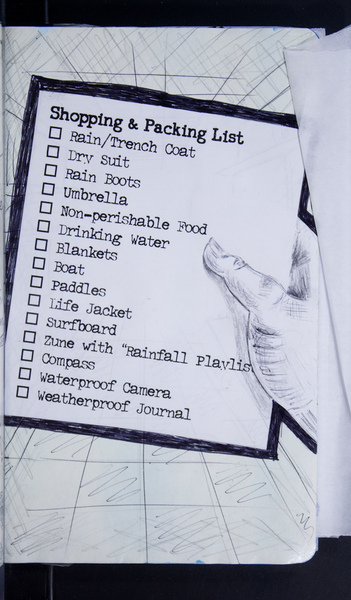 Shopping & Packing List
Rain/Trench Coat
Dry Suit
Rain Boots
Umbrella
Non-perishable Food
Drinking Water
Blankets
Boat
Paddles
Life Jacket
Surfboard
Zune with "Rainfall Playlis
Compass
Waterproof Camera
Weatherproof Journal